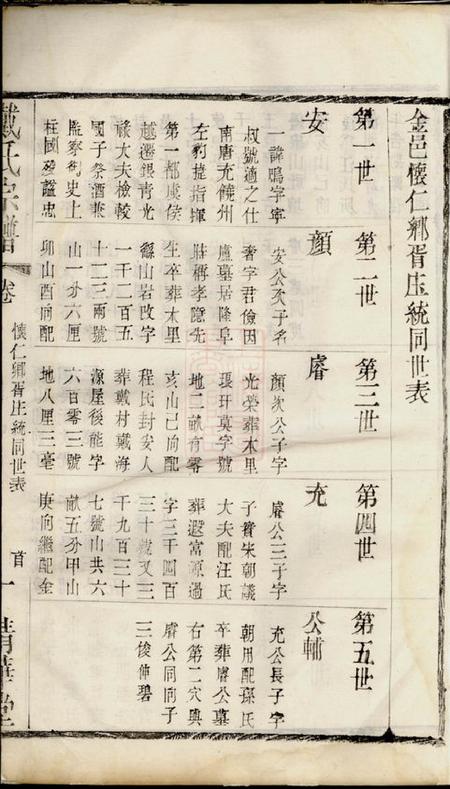 金邑懷仁鄉胥庄統同世表
第一世
第二世
第三世
第四世
第五世
安
顏
睿
充
公輔
一諱鳴字寧
叔號適之仕
南唐充饒州
左豹捷指揮
第一都虞侯
越遷銀青光
祿大夫檢較
國子祭酒兼
監察御史上
柱國 諡忠
安公次子名
奢字君儉因
廬墓居隆阜
時稱孝隱先
生卒葬木里
山岩改字
一千二百五
十二三兩號
山一分六厘
卯山酉向配
顏次公子字
光榮葬木里
琅玕莫字號
地二畝有零
亥山己向配
程氏封安人
葬戴村戴海
源屋後能字
六百零三號
地八厘三毫
睿公三子字
子 宋朝議
大夫配汪氏
葬遐富源過
字三千四百
三十 又三
千九百三十
七號山共六
畝五分甲山
庚向繼配金
充公長子字
朝用配孫氏
卒葬睿公墓
右第二穴與
睿公同向子
三俊伸碧
戴氏宗譜
卷
懷仁鄉胥庄統同世表
首
一